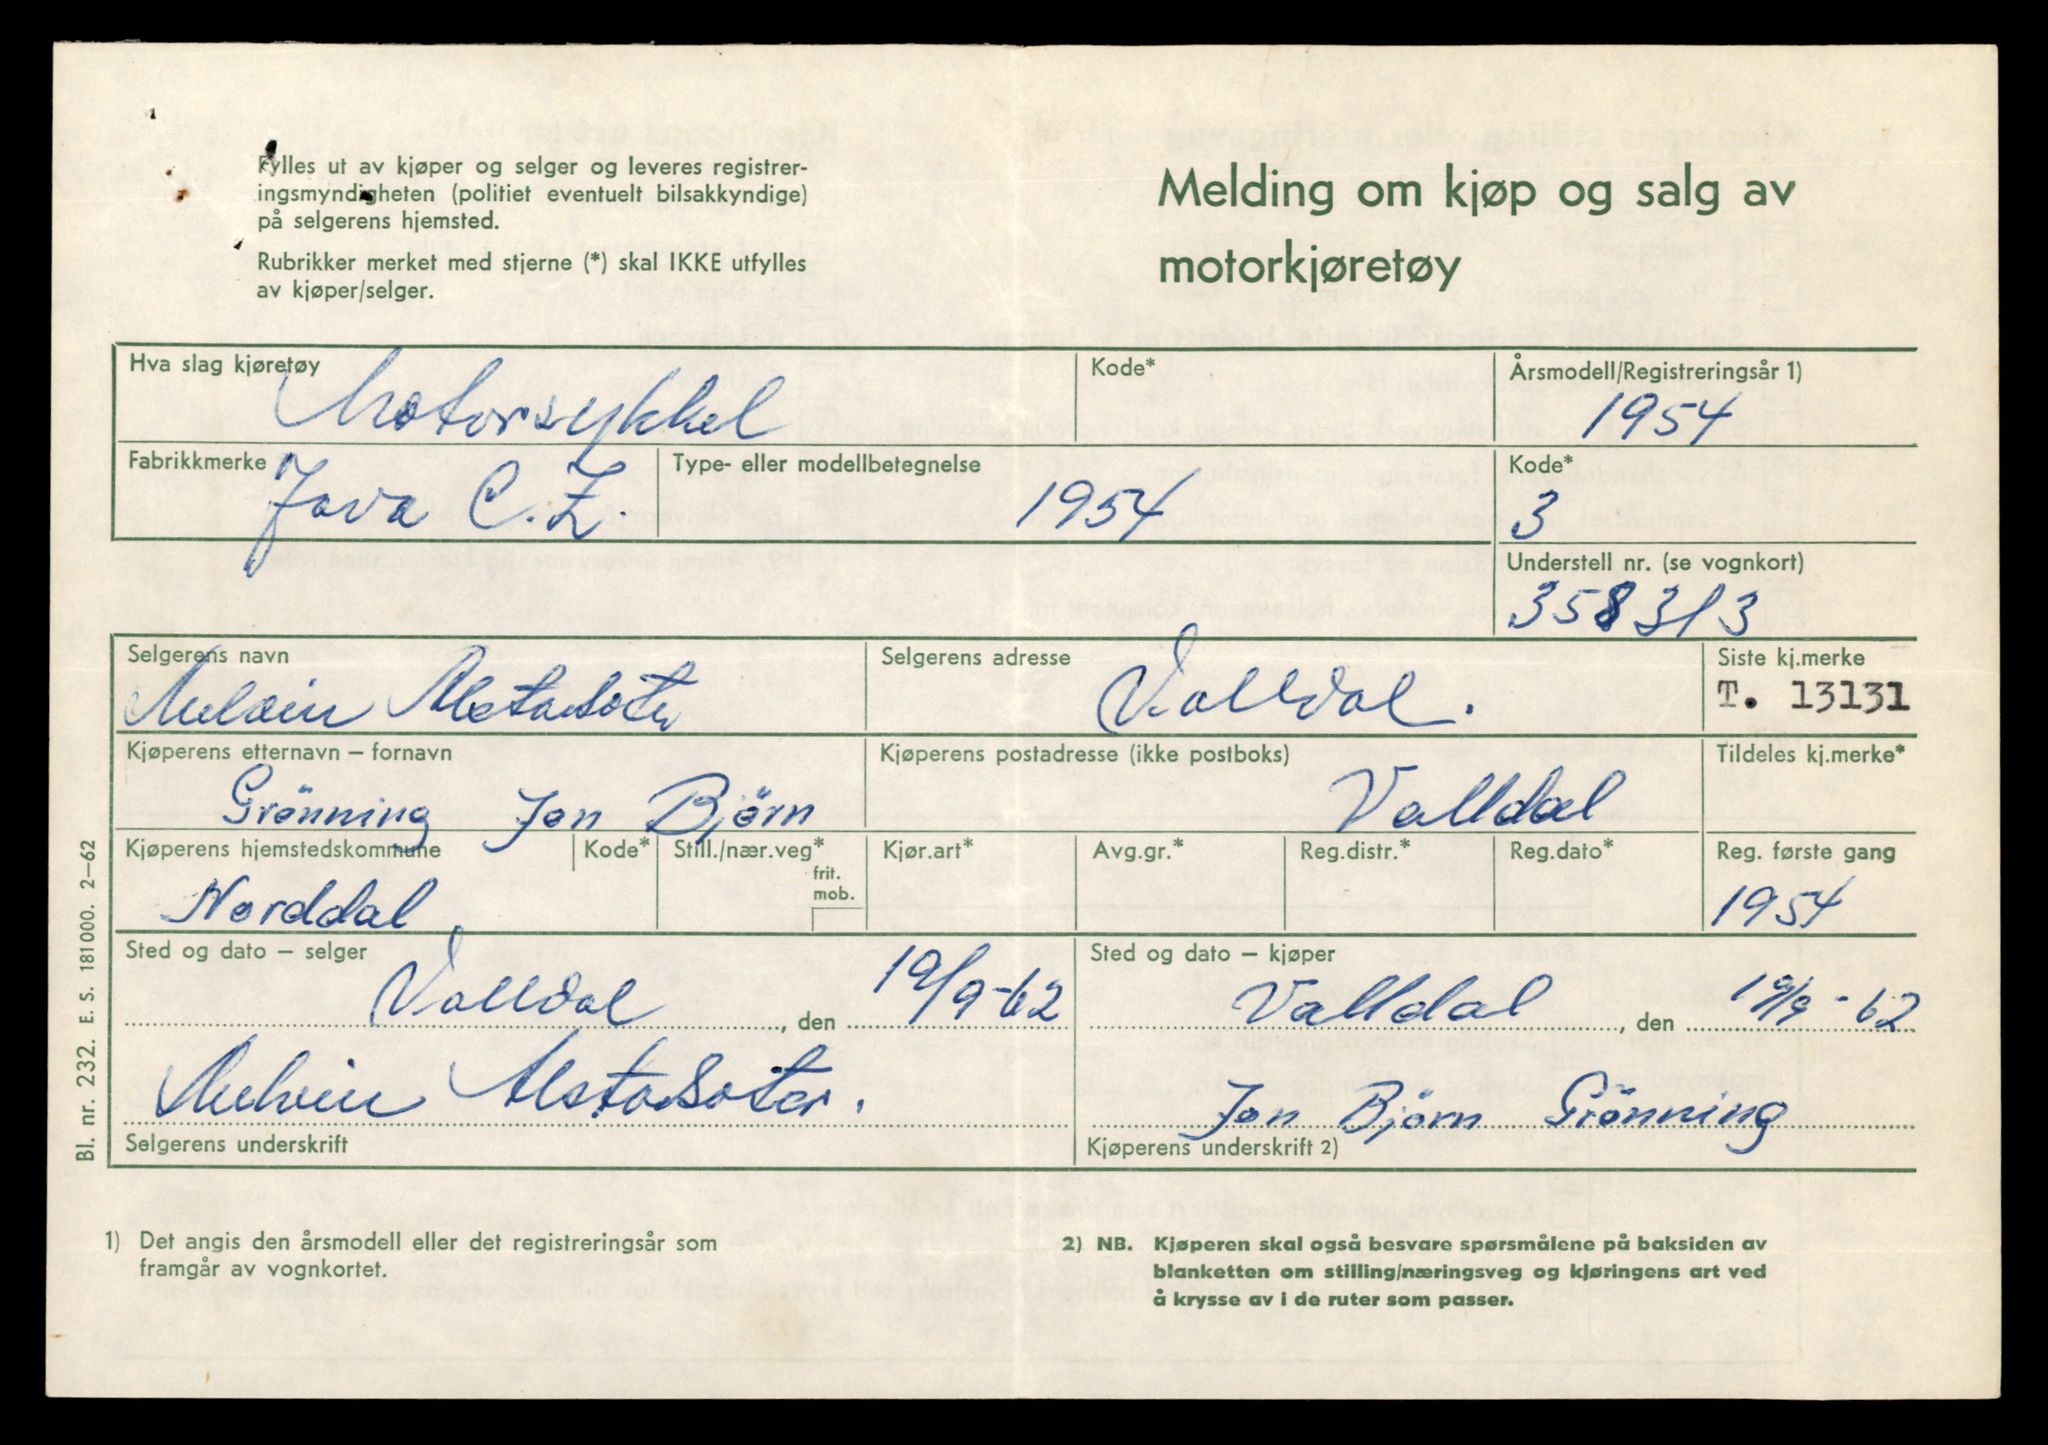 Fylles ut av kjøper og selger og leveres registrer-
ingsmyndigheten (politiet eventuelt bilsakkyndige)
på selgerens hjemsted.
Rubrikker merket med stjerne (*) skal IKKE utfylles
av kjøper/selger.
Melding om kjøp og salg av
motorkjøretøy
Hva slag kjøretøy Kode* Årsmodell/Registreringsår 1)
Motorsykkel 1954
Fabrikkmerke Type- eller modellbetegnelse Kode*
Java C.Z. 1954 3
Understell nr. (se vognkort)
358313
Selgerens navn Selgerens adresse Siste kj.merke
Melvin Alstadsæter Valldal. T. 13131
Kjøperens etternavn – fornavn Kjøperens postadresse (ikke postboks) Tildeles kj.merke*
Grönning Jon Björn Valldal
Kjøperens hjemstedskommune Kode* Still./nær.veg* Kjør.art* Avg.gr.* Reg.distr.* Reg.dato* Reg. første gang
frit.
mob.
Norddal 1954
Sted og dato – selger Sted og dato – kjøper
Valldal, den 19/9-62 Valldal, den 19/9-62
Melvin Alstadsæter. Jon Björn Grönning
Selgerens underskrift Kjøperens underskrift 2)
1) Det angis den årsmodell eller det registreringsår som
framgår av vognkortet.
2) NB. Kjøperen skal også besvare spørsmålene på baksiden av
blanketten om stilling/næringsveg og kjøringens art ved
å krysse av i de ruter som passer.
Bl. nr. 232. E. S. 181000. 2–62